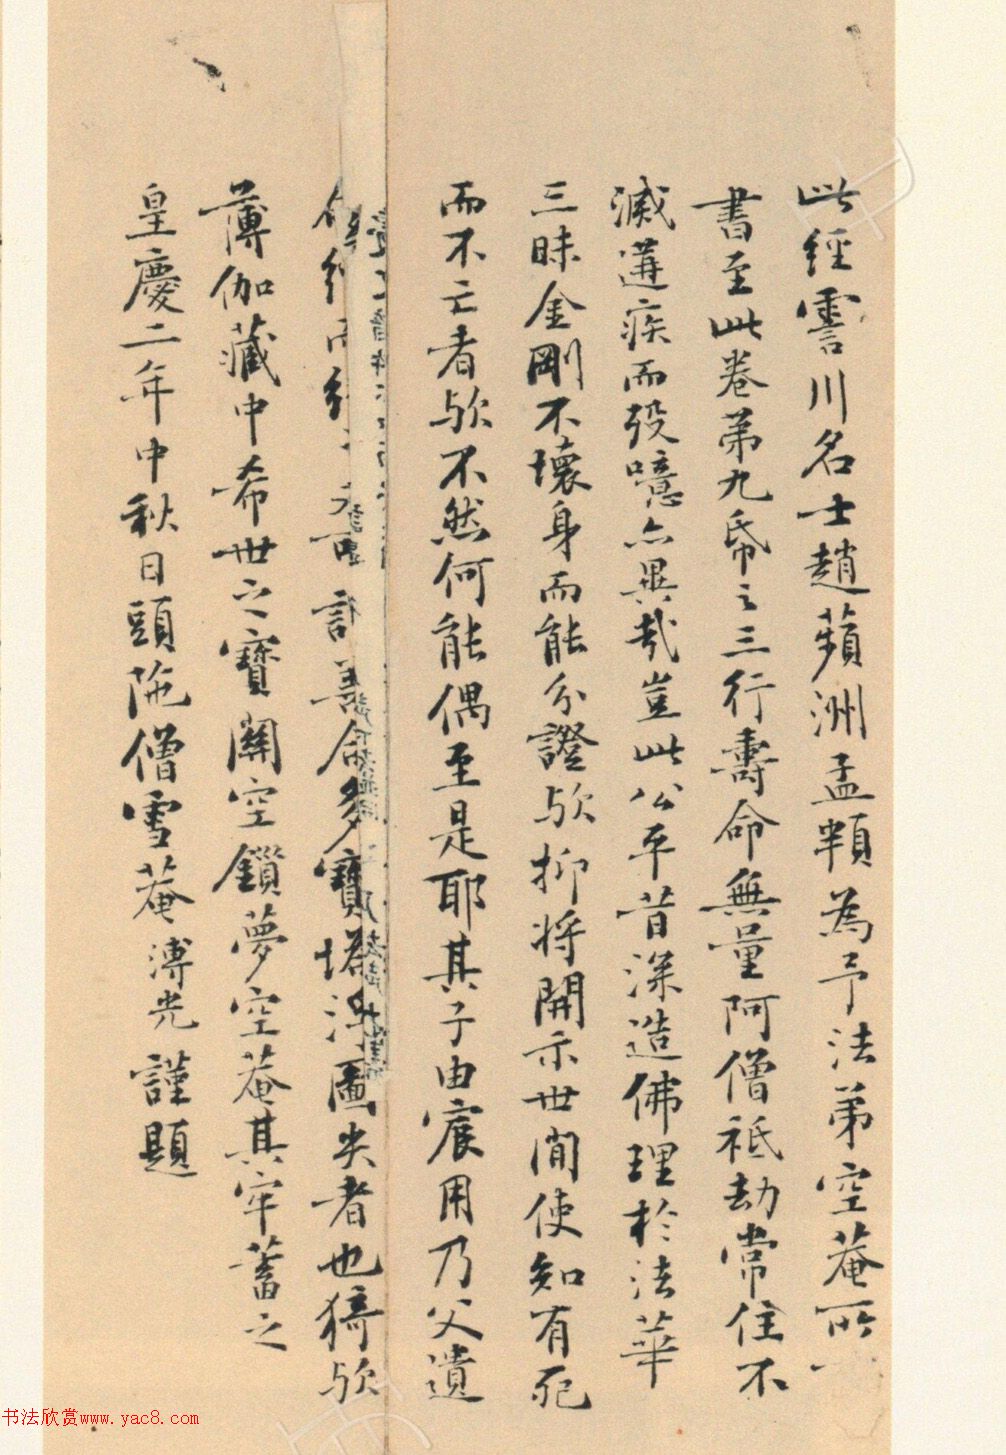 此經霅川名士趙蘋洲孟頖為予法弟空菴所
書至此卷第九帋之三行壽命無量阿僧祇劫常住不
滅遘疾而歿噫亦異哉豈此公平昔深造佛理於法華
三昧金剛不壞身而能分證歟抑将開示世間使知有死
而不亡者歟不然何能偶至是耶其子由宸用乃父遺
善命多寶塔圖失者也猗歟
薄伽藏中希世之寶關空鎖夢空菴其牢蓄之
皇慶二年中秋日頭陁僧雪菴溥光謹題
书法欣赏www.yac8.com